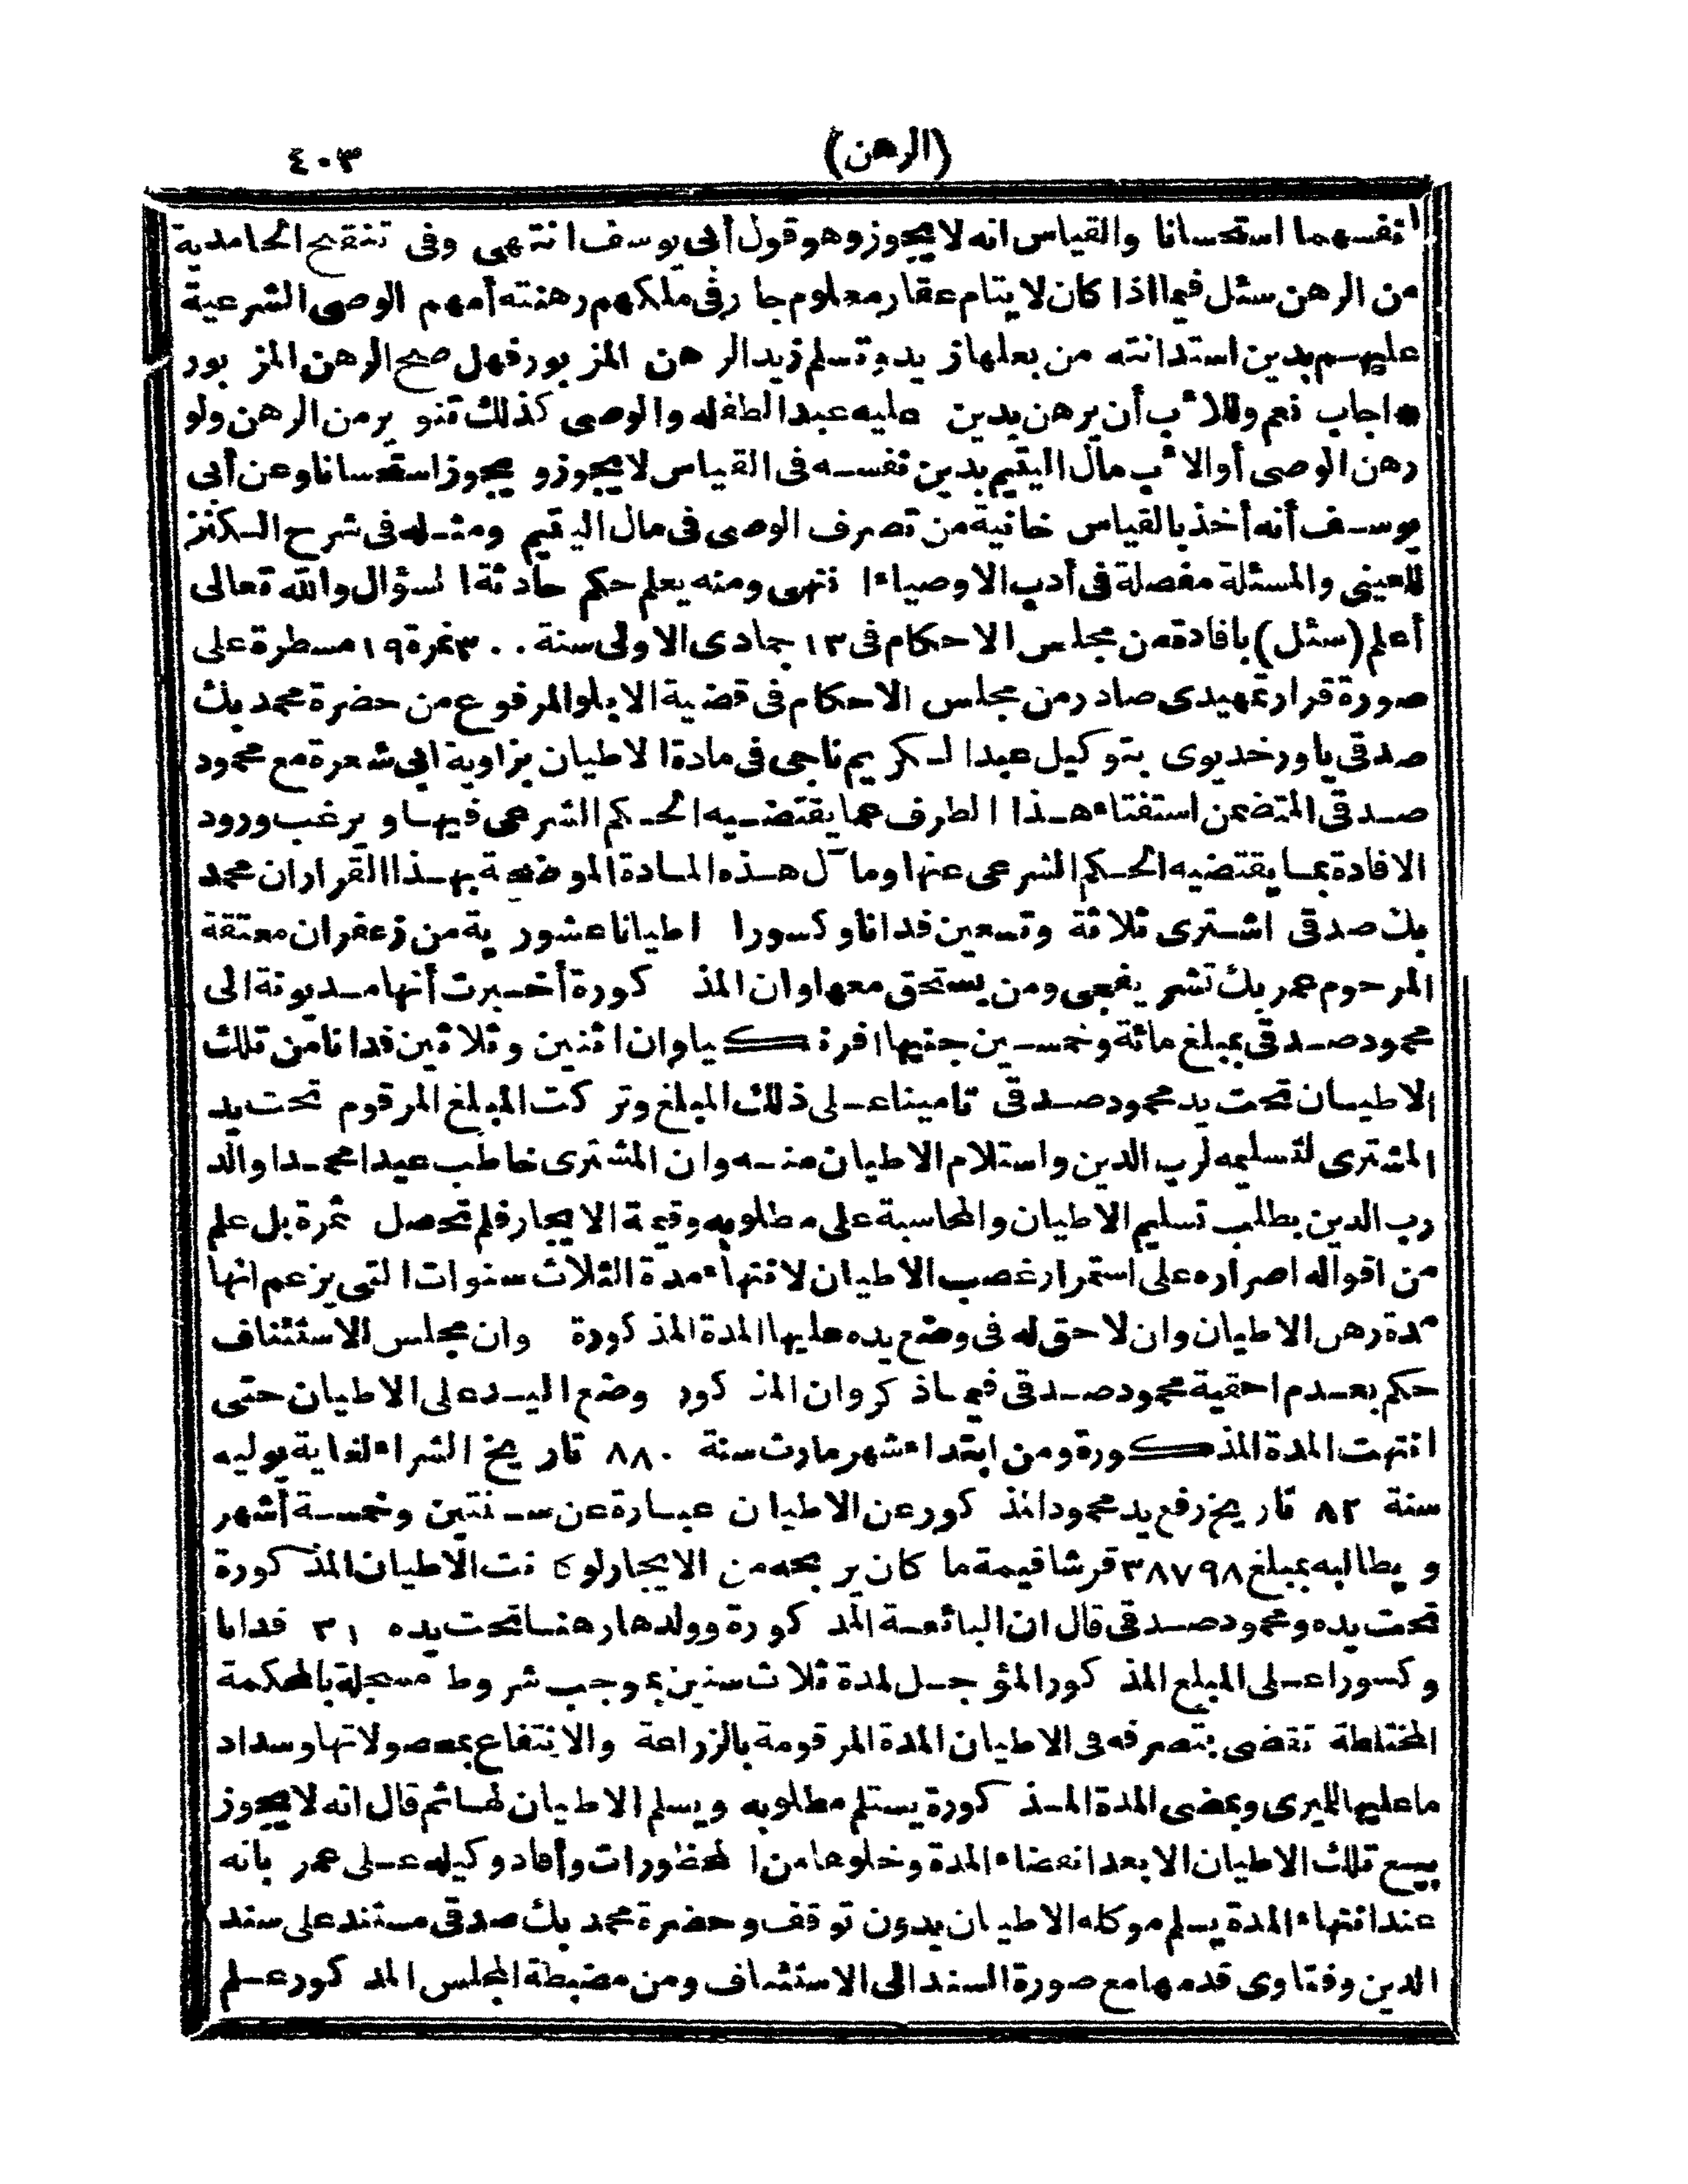 (الرهن) ٤٠٣
انفسهما استحسانا والقياس انه لا يجوز وهو قول أبى يوسف انتهى وفى تنقيح الحامدية
من الرهن سئل فيما اذا كان لايتام عقار معلوم جار فى ملكهم رهنته أمهم الوصى الشرعية
عليهم بدين استدانته من بعلها زيد وتسلم زيد الرهن المزبور فهل صح الرهن المزبور
* اجاب نعم وللأب أن يرهن بدين عليه عبدا لطفله والوصى كذلك تنوير من الرهن ولو
رهن الوصى أو الأب مال اليتيم بدين نفسه فى القياس لا يجوز ويجوز استحسانا وعن أبى
يوسف أنه أخذ بالقياس خانية من تصرف الوصى فى مال اليتيم ومثله فى شرح الكنز
للعينى والمسئلة مفصلة فى أدب الاوصياء انتهى ومنه يعلم حكم حادثة السؤال والله تعالى
أعلم (سئل) بافادة من مجلس الاحكام فى ١٣ جمادى الاولى سنة ٣٠٠ نمرة ١٩ مسطرة على
صورة قرار تمهيدى صادر من مجلس الاحكام فى قضية الابلو المرفوع من حضرة محمد بك
صدقى ياور خديوى بتوكيل عبد الكريم ناجى فى مادة الاطيان بزاوية ابى شعرة مع محمود
صدقى المتضمن استفتاء هذا الطرف عما يقتضيه الحكم الشرعى فيها ويرغب ورود
الافادة بما يقتضيه الحكم الشرعى عنها ومآل هذه المادة الموضحة بهذا القرار ان محمد
بك صدقى اشترى ثلاثة وتسعين فدانا وكسورا اطيانا عشورية من زعفران معتقة
المرحوم عمر بك تشريفجى ومن يستحق معها وان المذكورة أخبرت أنها مديونة الى
محمود صدقى بمبلغ مائة وخمسين جنيها افرنكيا وان اثنين وثلاثين فدانا من تلك
الاطيان تحت يد محمود صدقى تامينا على ذلك المبلغ وتركت المبلغ المرقوم تحت يد
المشترى لتسليمه لرب الدين واستلام الاطيان منه وان المشترى خاطب عيدا محمدا والد
رب الدين بطلب تسليم الاطيان والمحاسبة على مطلوبه وقيمة الايجار فلم تحصل ثمرة بل علم
من اقواله اصراره على استمرار غصب الاطيان لانتهاء مدة الثلاث سنوات التى يزعم انها
مدة رهن الاطيان وان لاحق له فى وضع يده عليها المدة المذكورة وان مجلس الاستئناف
حكم بعدم احقية محمود صدقى فيما ذكر وان المذكور وضع اليد على الاطيان حتى
انتهت المدة المذكورة ومن ابتداء شهر مارث سنة ٨٨٠ تاريخ الشراء لغاية يوليه
سنة ٨٢ تاريخ رفع يد محمود المذكور عن الاطيان عبارة عن سنتين وخمسة أشهر
ويطالبه بمبلغ ٣٨٧٩٨ قرشا قيمة ما كان يربحه من الايجار لو كانت الاطيان المذكورة
تحت يده ومحمود صدقى قال ان البائعة المذكورة وولدها رهنا تحت يده ٣١ فدانا
وكسورا على المبلغ المذكور المؤجل لمدة ثلاث سنين بموجب شروط مسجلة بالمحكمة
المختلطة تقضى بتصرفه فى الاطيان المدة المرقومة بالزراعة والانتفاع بمحصولاتها وسداد
ما عليها للميرى وبمضى المدة المذكورة يستلم مطلوبه ويسلم الاطيان لها ثم قال انه لا يجوز
بيع تلك الاطيان الا بعد انقضاء المدة وخلوها من المحظورات وأفاد وكيله على عمر بانه
عند انتهاء المدة يسلم موكله الاطيان بدون توقف وحضرة محمد بك صدقى مستند على سند
الدين وفتاوى قدمها مع صورة السند الى الاستئناف ومن مضبطة المجلس المذكور علم